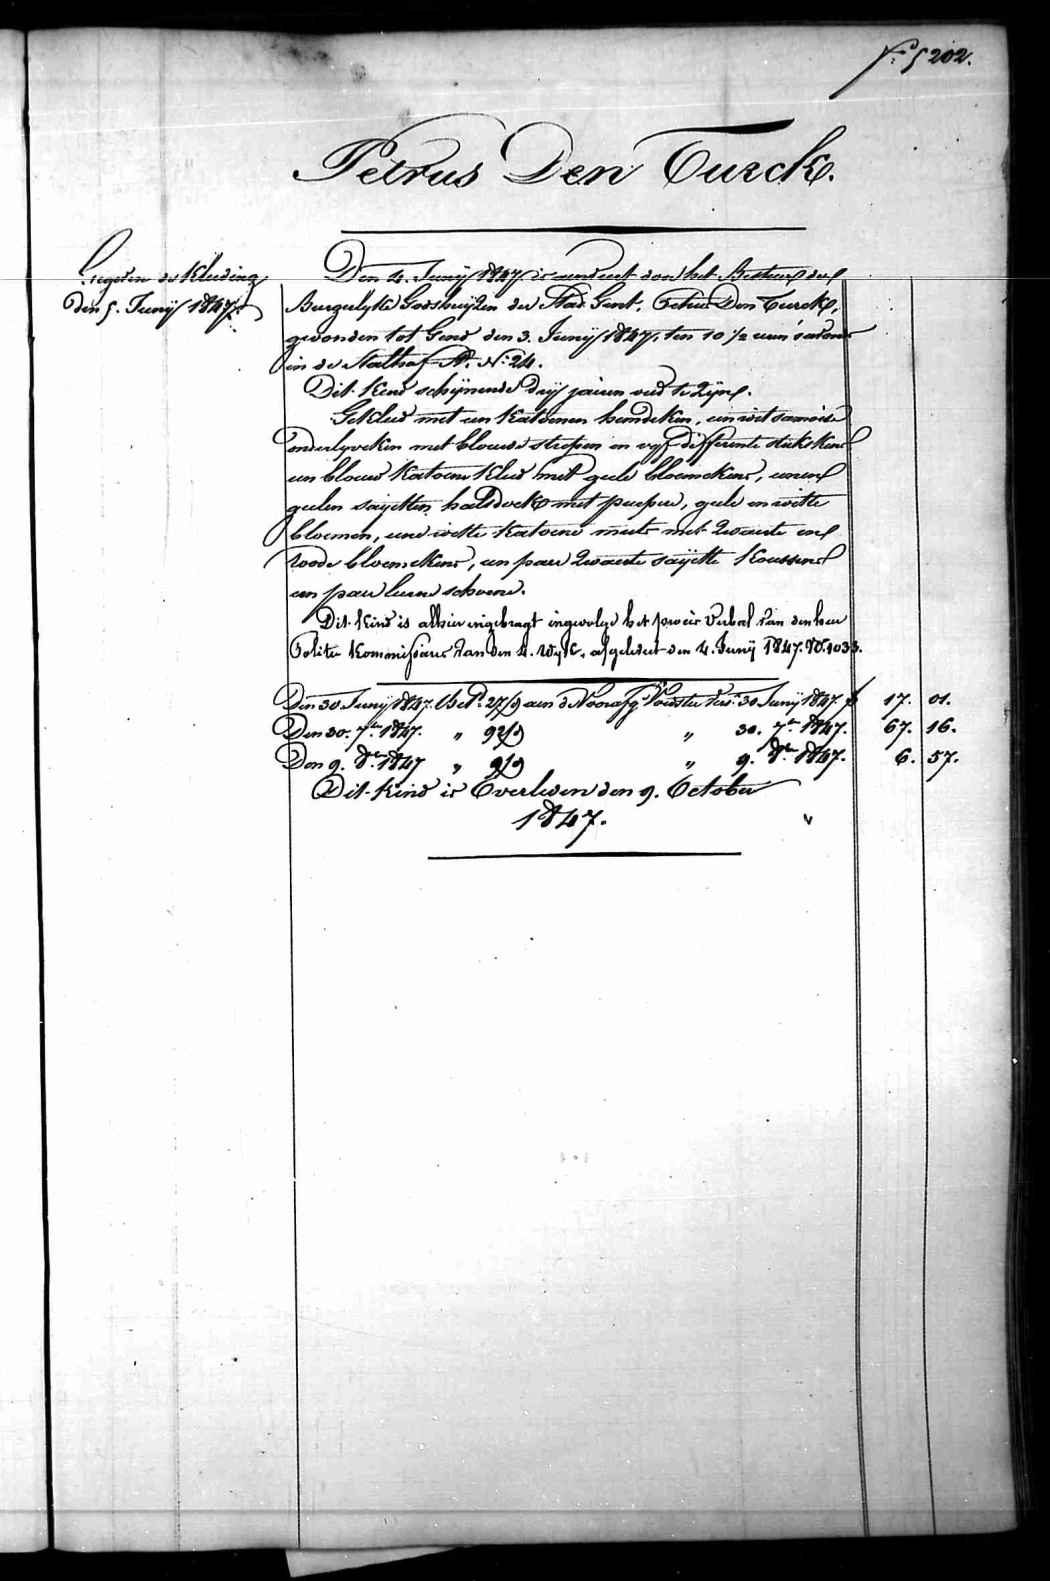 f.° 5202.
Petrus Den Turck.
Gegeven de Kleeding
den 5. Junÿ 1847.
Den 4. Junÿ 1847. is aenveert door het Bestuer der
Burgerlÿke Godshuÿzen der Stad Gent, Petrus Den Turck,
gevonden tot Gend den 3. Junÿ 1847, ten 10 1/2 uren 's avonds
in de Stalhof N.° 24.
Dit kind schÿnende drÿ jaeren oud te zÿn.
Gekleed met een katoenen hemdeken, een wit samoise
onderlÿveken met blauwe strepen en vyf differente stukskens
een blauw katoene kleed met geele bloemekens, eenen
geelen saÿetten halsdoek met purpere, geele en witte
bloemen, eene witte katoene muts met zwarte en
roode bloemekens, een paer zwarte saÿette koussens
een paer leere schoene.
Dit kind is alhier ingebragt ingevolge het procès verbal van den heer
Politie Kommissaris van den 4. Wÿk, afgeleverd den 4. Junÿ 1847. N.° 1033.
Den 30 Junÿ 1847. Bet.d 27/9 aen de Voorafg.e Voedster vers.n 30 Junÿ 1847. f 17. 01.
Den 30. 7.er 1847. " 92/9 " 30. 7.er 1847. 67. 16.
Den 9. 8.er 1847 " 9/9 " 9. 8.er 1847. 6. 57.
Dit kind is Overleden den 9. October
1847.